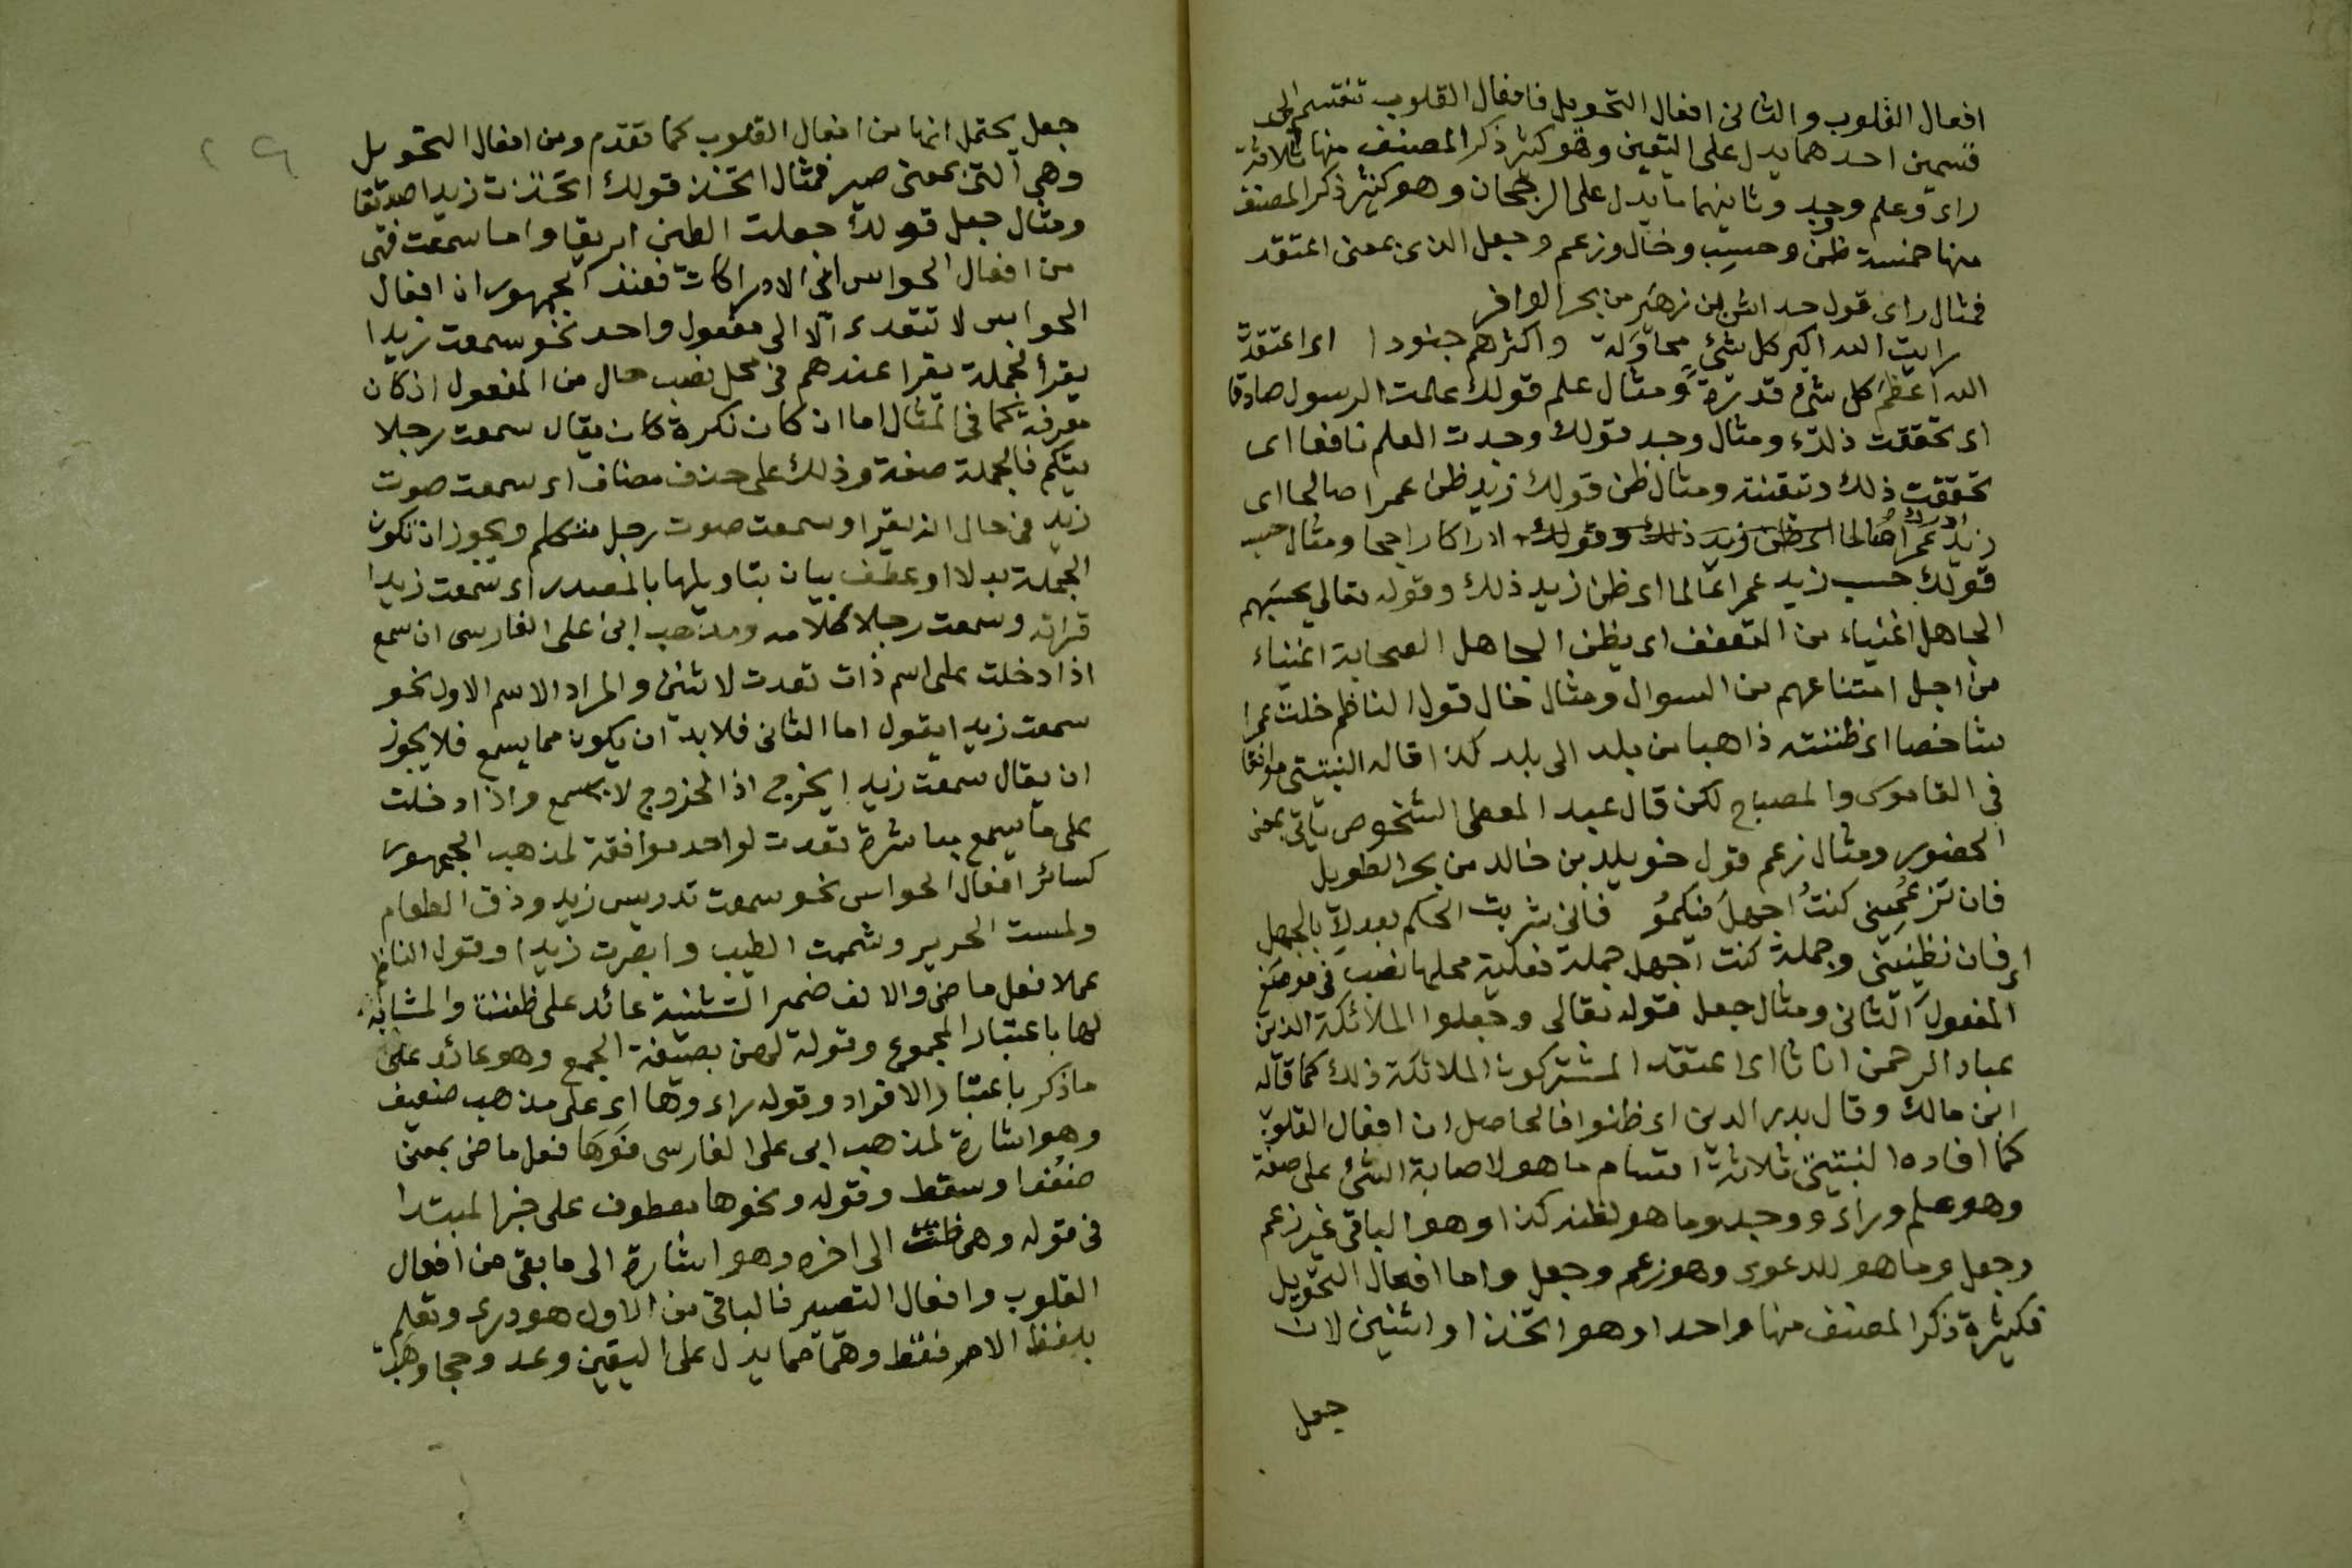 افعال القلوب والثانى افعال التحويل فافعال القلوب تنقسم الى
قسمين احدهما يدل على اليقين وهو كثير ذكر المصنف منها ثلاثة
راى وعلم ووجد وثانيهما ما يدل على الرجحان وهو كثير ذكر المصنف
منها خمسة ظن وحسب وخال وزعم وجعل الذى بمعنى اعتقد
فمثال راى قول خداش بن زهير من بحر الوافر
رايت الله اكبر كل شئ محاولة واكثرهم جنودا اى اعتقدت
الله اعظم كل شئ قدرة ومثال علم قولك علمت الرسول صادقا
اى تحققت ذلك ومثال وجد قولك وجدت العلم نافعا اى
تحققت ذلك وتيقنته ومثال ظن قولك زيد ظن عمرا صالحا اى
زيد ادرك عمرا صالحا اى ظن زيد ذلك وقولك ادراكا راجحا ومثال حسب
قولك حسب زيد عمرا عالما اى ظن زيد ذلك وقوله تعالى يحسبهم
الجاهل اغنياء من التعفف اى يظن الجاهل الصحابة اغنياء
من اجل امتناعهم من السوال ومثال خال قول الناظم خلت عمرا
شاخصا اى ظننته ذاهبا من بلد الى بلد كذا قاله النبتيتى موافقا
فى القاموس والمصباح لكن قال عبد المعطى الشخوص ياتى بمعنى
الحضور ومثال زعم قول خويلد بن خالد من بحر الطويل
فان تزعمينى كنت اجهل فيكمو فانى شريت الحلم بعدك بالجهل
اى فان تظنينى وجملة كنت اجهل جملة فعلية محلها نصب فى موضع
المفعول الثانى ومثال جعل قوله تعالى وجعلوا الملائكة الذين
عباد الرحمن اناثا اى اعتقد المشتركون الملائكة ذلك كما قاله
ابن مالك وقال بدر الدين اى ظنوا فالحاصل ان افعال القلوب
كما افاده النبتيتى ثلاثة اقسام ما هو لاصابة الشئ على صفة
وهو علم وراى ووجد وما هو لظنه كذا وهو الباقى غير زعم
وجعل وما هو للدعوى وهو زعم وجعل واما افعال التحويل
فكثيرة ذكر المصنف منها واحدا وهو اتخذ او اثنين لان
جعل
جعل يحتمل انها من افعال القلوب كما تقدم ومن افعال التحويل
وهى التى بمعنى صير فمثال اتخذ قولك اتخذت زيدا صديقا
ومثال جعل قولك جعلت الطين ابريقا واما سمعت فهى
من افعال الحواس اى الادراكات فعند الجمهور ان افعال
الحواس لا تتعدى الا الى مفعول واحد نحو سمعت زيدا
يقرأ فجملة يقرا عندهم فى محل نصب حال من المفعول اذ كان
معرفة كما فى المثال اما ان كان نكرة كان يقال سمعت رجلا
يتكلم فالجملة صفة وذلك على حذف مضاف اى سمعت صوت
زيد فى حال انه يقرا وسمعت صوت رجل متكلم ويجوز ان تكون
الجملة بدلا او عطف بيان بتاويلها بالمصدر اى سمعت زيدا
قراته وسمعت رجلا كلامه ومذهب ابى على الفارسى ان سمع
اذا دخلت على اسم ذات تعدت لاثنين والمراد الاسم الاول نحو
سمعت زيدا يقول اما الثانى فلا بد ان يكون مما يسمع فلا يجوز
ان يقال سمعت زيدا يخرج اذ الخروج لا يسمع واذا دخلت
على ما يسمع مباشرة تعدت لواحد موافقة لمذهب الجمهور
كسائر افعال الحواس نحو سمعت تدريس زيد وذقت الطعام
ولمست الحرير وشممت الطيب وابصرت زيدا وقول الناظم
عملا فعل ماضى والالف ضمير التثنية عائد على ظننت والمشابه
لها باعتبار المجموع وقوله لهن بصيغة الجمع وهو عائد على
ما ذكر باعتبار الافراد وقوله راى وها اى على مذهب ضعيف
وهو اشارة لمذهب ابى على الفارسى فوها فعل ماض بمعنى
ضعف او سقط وقوله ونحوها معطوف على خبر المبتدا
فى قوله وهى ظننت الى اخره وهو اشارة الى ما بقى من افعال
القلوب وافعال التصيير فالباقى من الاول هو درى وتعلم
بلفظ الامر فقط وهما مما يدل على اليقين وعد وحجا وهب